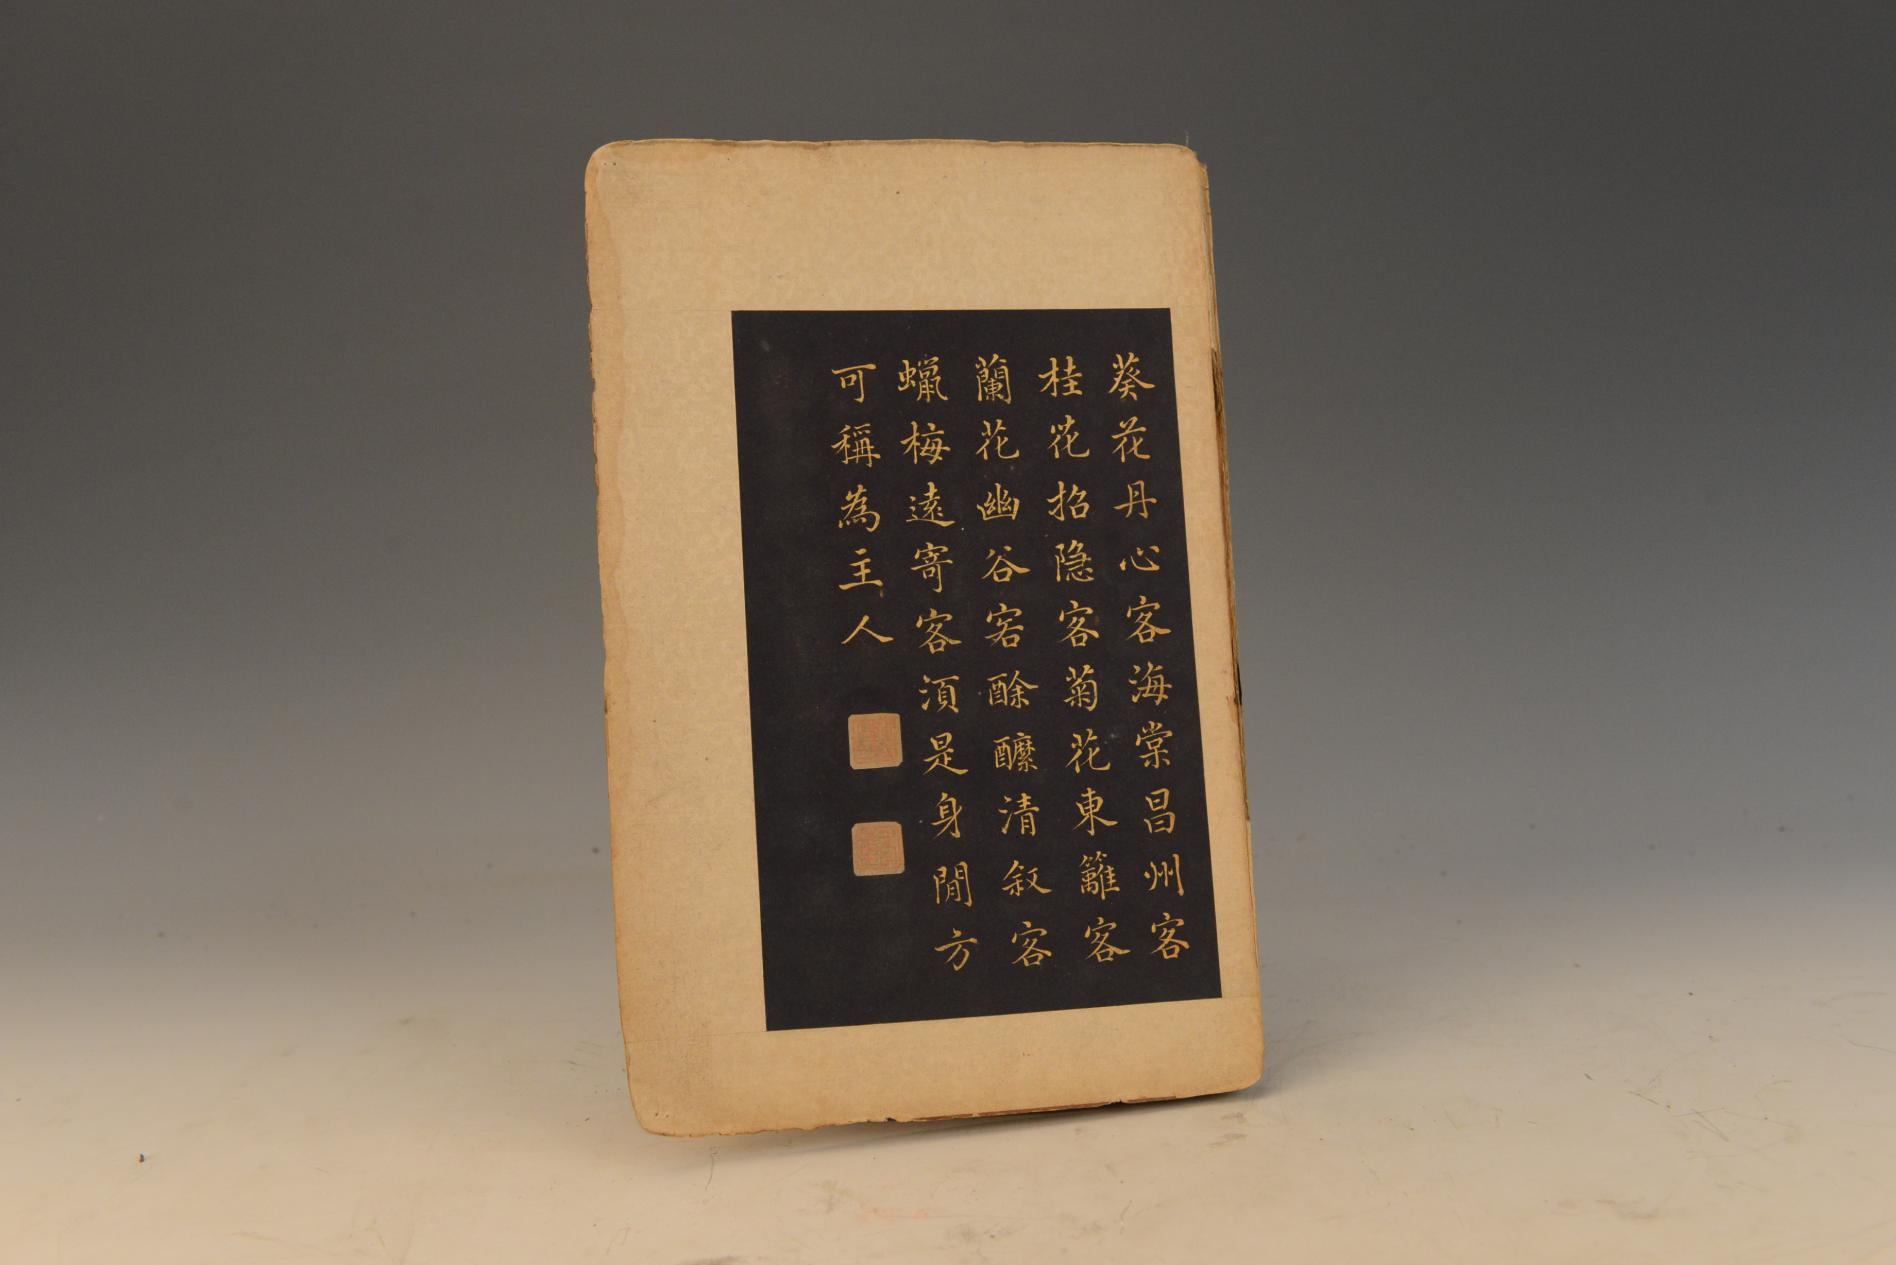 葵花丹心客海棠昌州客
桂花招隐客菊花東籬客
蘭花幽谷客酴醾清叙客
蠟梅遠寄客湏是身閒方
可稱為主人